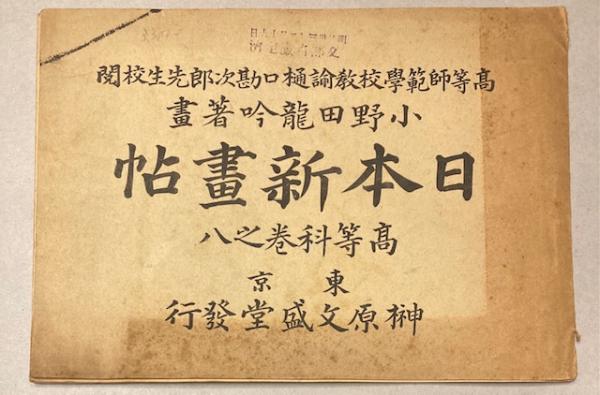 文部省檢定濟
髙等師範學校敎諭樋口勘次郎先生校閲
小野田龍吟著畫
日本新畫帖
髙等科卷之八
東京
榊原文盛堂發行